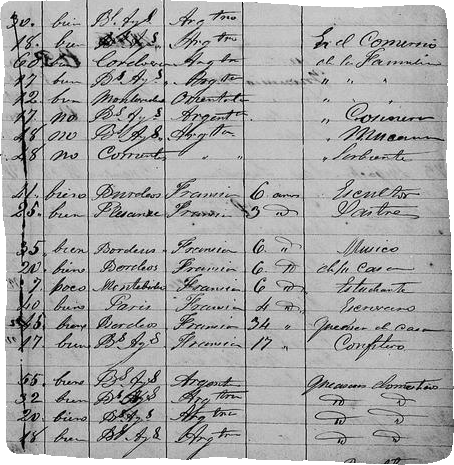 30. bien Bs. Ays. Argtno
18. bien Bs. Ays. Argtno En el Comercio
60 bien Cordova Argtna de la Familia
17 bien Bs. Ays. Argtna " "
12 bien Montevideo Orientala " "
17 no Bs. Ays. Argentna " Cosinera
18 no Bs. Ays. Argtna " Mucama
28 no Corrientes " " " Serbiente
41. biens Burdeos Francia 6 años Escultor
25. bien Francia 3 D Sastre
35. bien Bordeus Francia 6. " Musico
20. biene Bordeos Francia 6. D de su casa
7 poco Montebideo Francia 6 D Estudiante
40 biens Paris Francia 4 D Escribano
45. biens Bordeos Francia 34 " casa
17 biens Bs. Ays. Francia 17 " Confitero
55. biens Bs. Ays. Argent domestico
32 bien Bs. Ays. Argtna D D
20. biens Bs. Ays. Argtna D D
18 bien Bs. Ays. Argtna D D